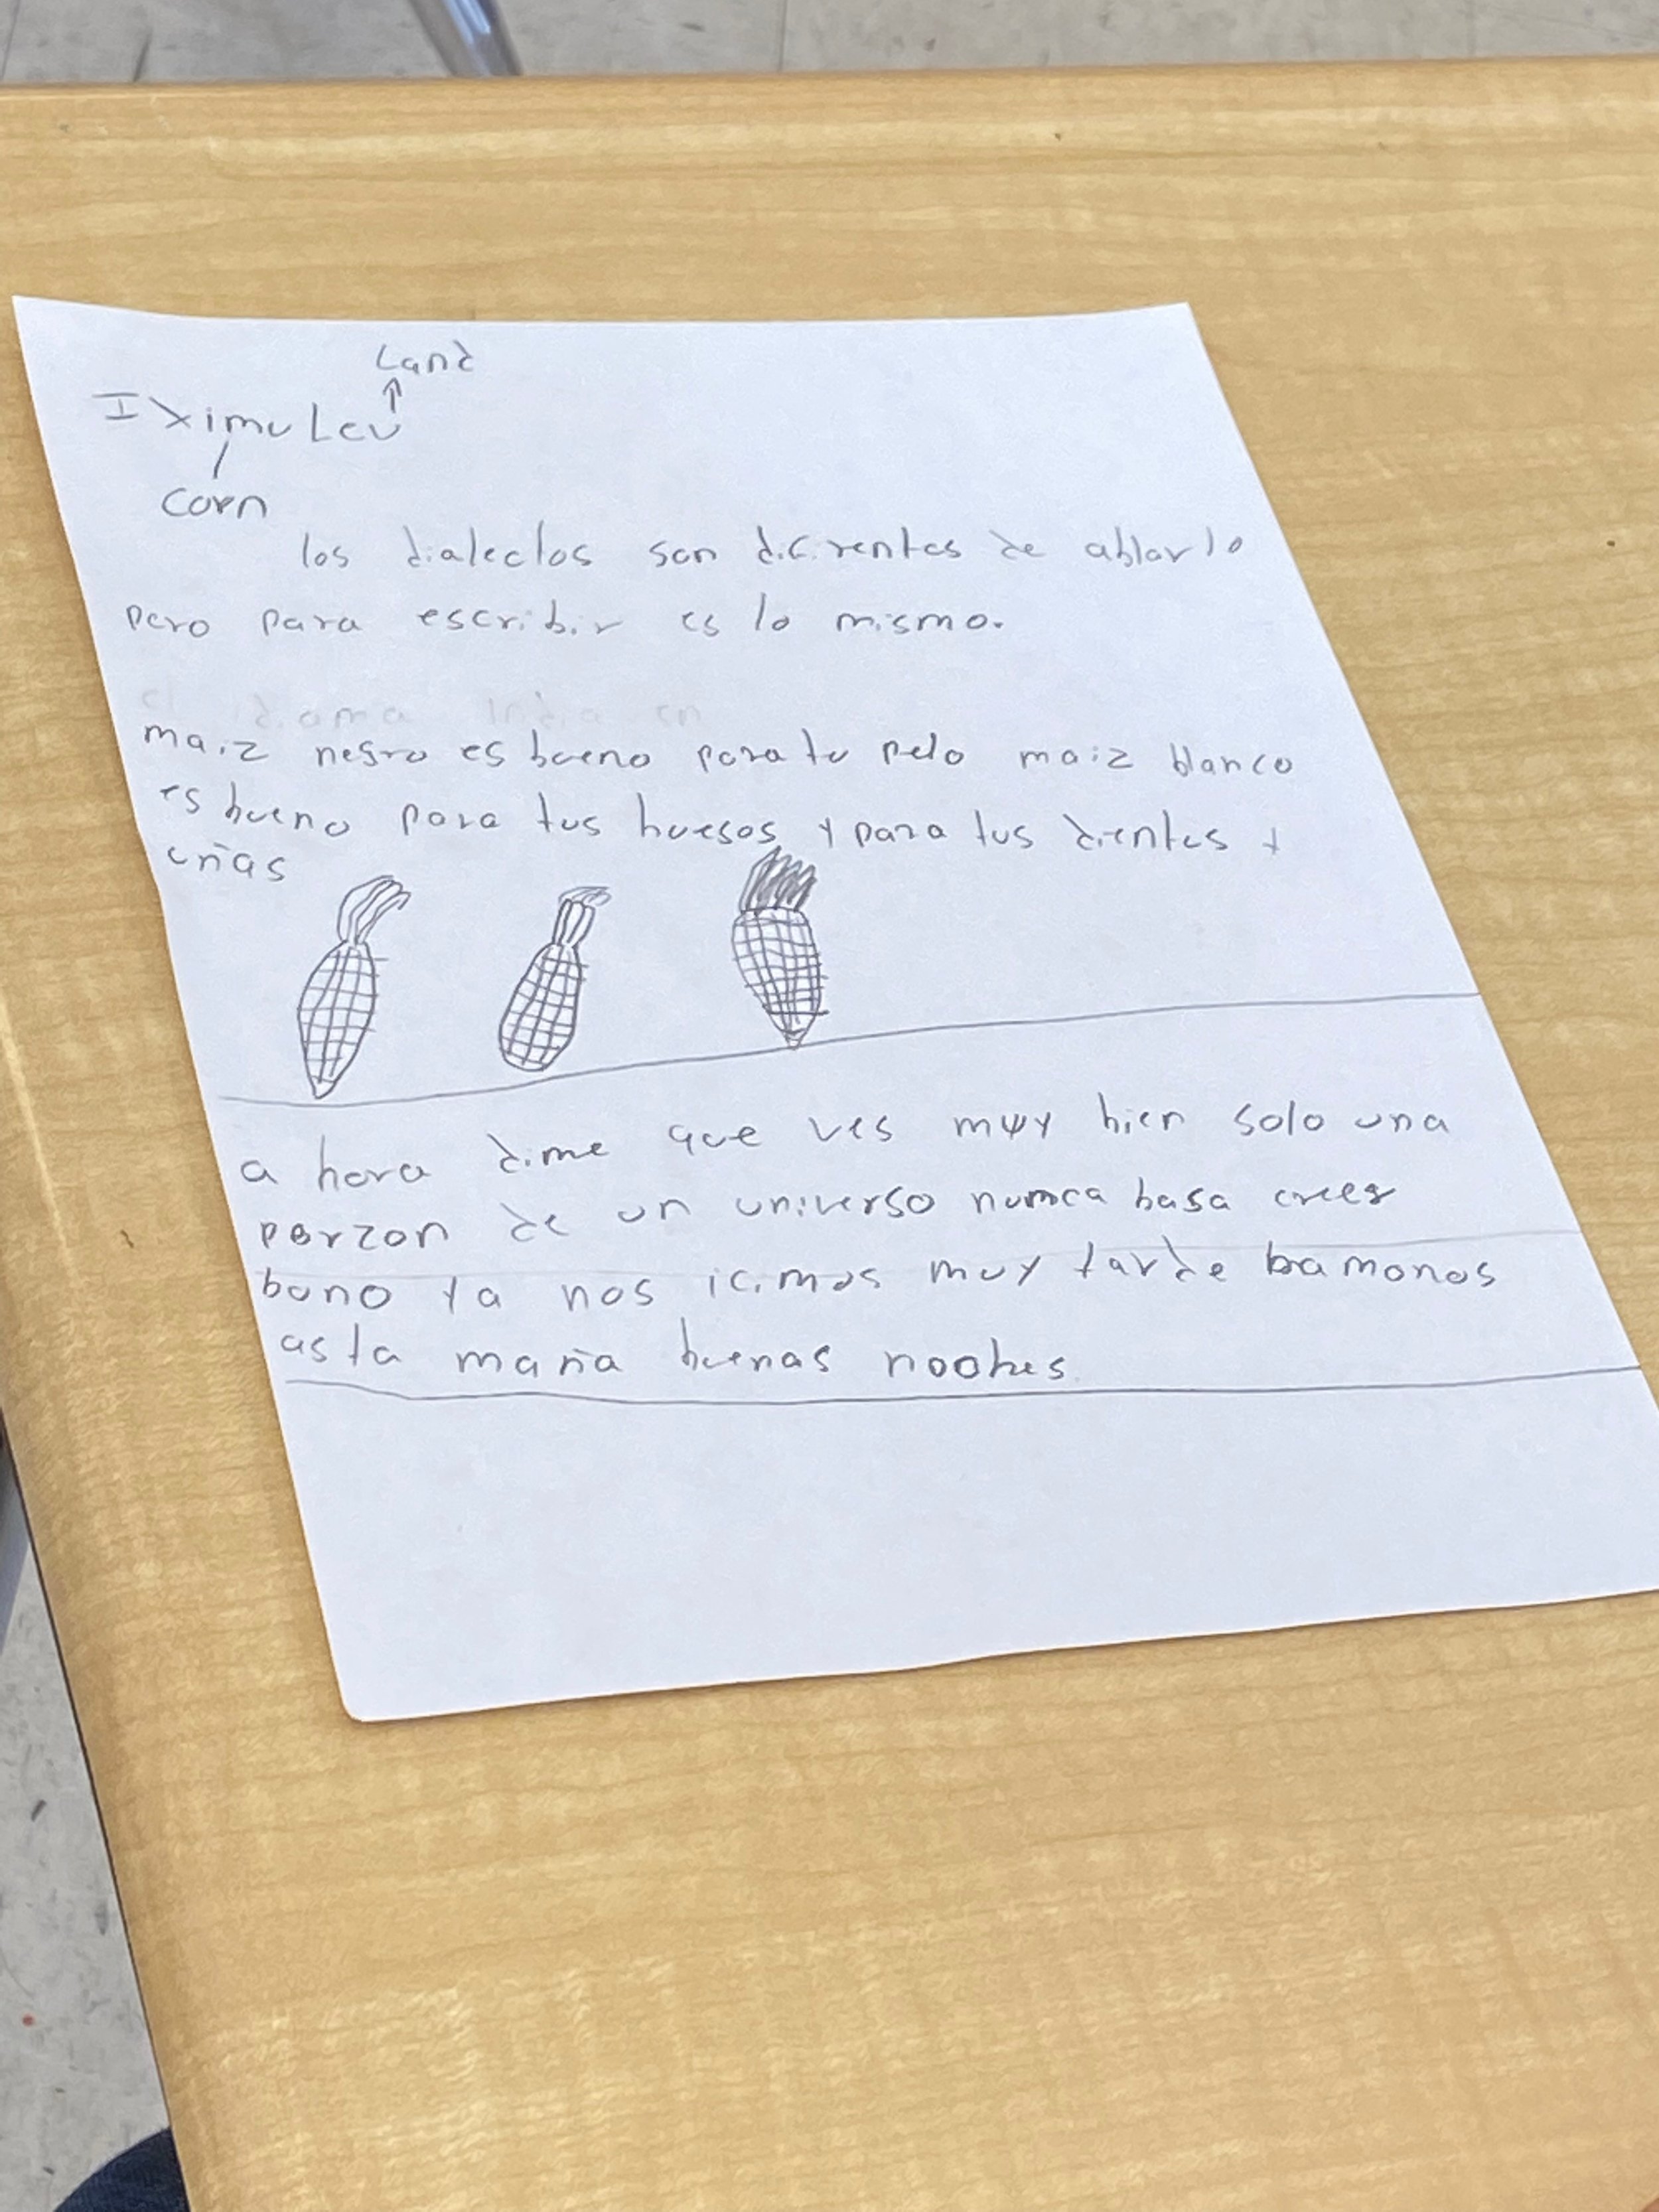 Land
IximuLeu
corn
los dialectos son difirentes de ablarlo
pero para escribir es lo mismo.
el idioma India en
maiz negro es bueno para tu pelo maiz blanco
es bueno para tus huesos y para tus dientes y
uñas
a hora dime que ves muy bien solo una
porzon de un universo numca basa creer
bono ya nos icimos muy tarde bamonos
asta maña buenas noches